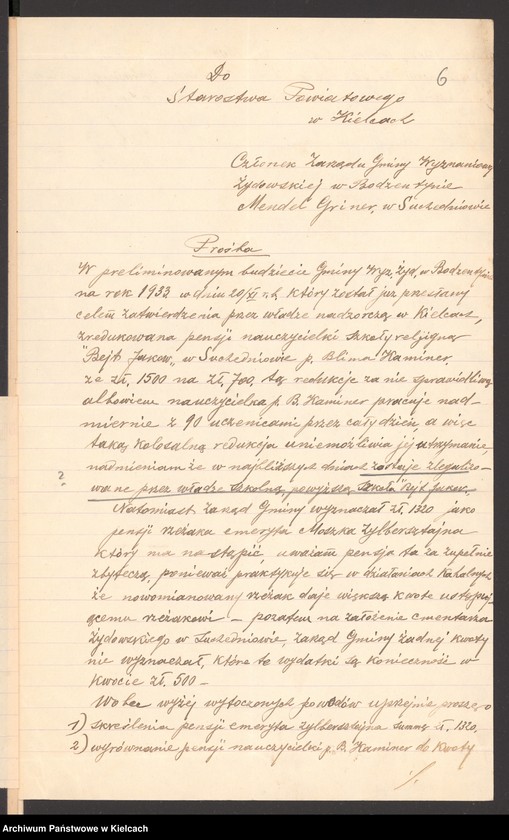 6
Do
Starostwa Powiatowego
w Kielcach
Członek Zarządu Gminy Wyznaniowej
Żydowskiej w Bodzentynie
Mendel Griner, w Suchedniowie
Prośba
W preliminowanym budżecie Gminy Wyz. Żyd. w Bodzentynie
na rok 1933 w dniu 20/XI r.b. który został już przesłany
celem zatwierdzenia przez władze nadzorczą w Kielcach,
zredukowana pensja nauczycielki szkoły religijną
"Bejt Jakow" w Suchedniowie p. Blima Kaminer
ze zł. 1500 na zł. 700, tą redukcje za nie sprawiedliwą
albowiem nauczycielka p. B. Kaminer pracuje nad-
miernie z 90 uczenicami przez cały dzień, a więc
taką kolosalną redukcja uniemożliwia jej utrzymanie,
nadmieniam że w najbliższych dniach zostaje zlegalizo-
? wane przez władze szkolną, powyższą szkoła "Bejt Jakow.
Natomiast zarząd Gminy wyznaczał zł. 1320 jako
pensji rzezaka emeryta Moszka Zylbersztajna
który ma nastąpić uważam pensja ta za zupełnie
zbyteczą, ponieważ praktykuje się w działaniach Kahalnych
że nowomianowany rzezak daje większą kwote ustępuj-
ącemu rzezakowi – pozatem na założenie cmentarza
Żydowskiego w Suchedniowie, zarząd Gminy żadnej kwoty
nie wyznaczał, które te wydatki są konieczność w
kwocie zł. 500 –
Wobec wyżej wytoczonych powodów uprzejmie proszę o
1) skreślenia pensji emeryta Zylbersztajna sumę zł. 1320,
2) wyrównanie pensji nauczycielki p. B. Kaminer do kwoty
./.
Archiwum Państwowe w Kielcach